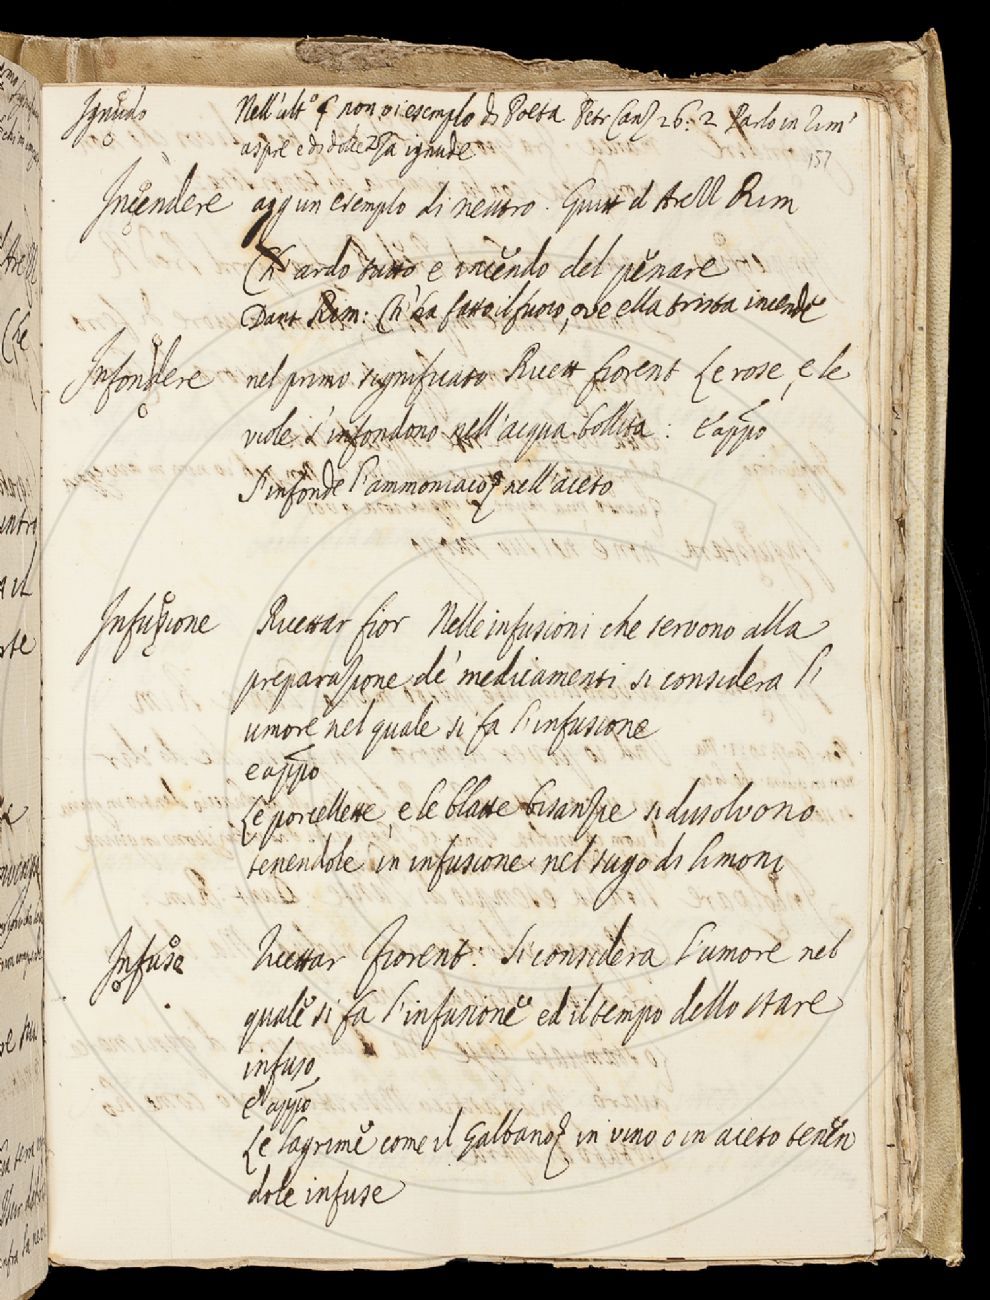 Ignudo Nell'ult° § non vi è esemplo di Poeta Petr Canz 26. 2 Parlo in rim'
aspre e di dolcezza ignude
157
Incendere agg un esemplo di neutro. Guitt d Arezz Rim
Ch' ardo tutto e incendo del penare
Dant Rim: Ch' ha fatto il fuoco, ove ella trista incende
Infondere nel primo significato Ricett fiorent Le rose, e le
viole s'infondono nell'acqua bollita: e appo
S'infonde l'ammoniaco nell'aceto
Infusione Ricettar fior Nelle infusioni che servono alla
preparazione de' medicamenti si considera l'
umore nel quale si fa l'infusione
e appo
Le porcellette, e le blatte bisanzie si dissolvono
tenendole in infusione nel sugo di limoni
Infuso Ricettar Fiorent: Si considera l'umore nel
quale si fa l'infusione ed il tempo dello stare
infuso
e appo
Le lagrime come il Galbano in vino o in aceto tenen
dole infuse